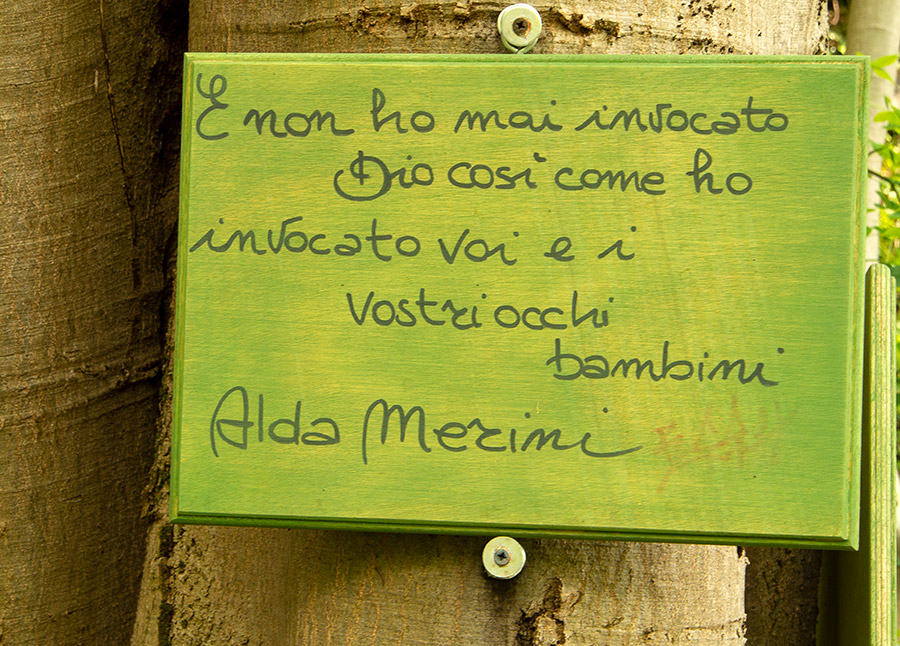 E non ho mai invocato
Dio così come ho
invocato voi e i
vostri occhi
bambini
Alda Merini